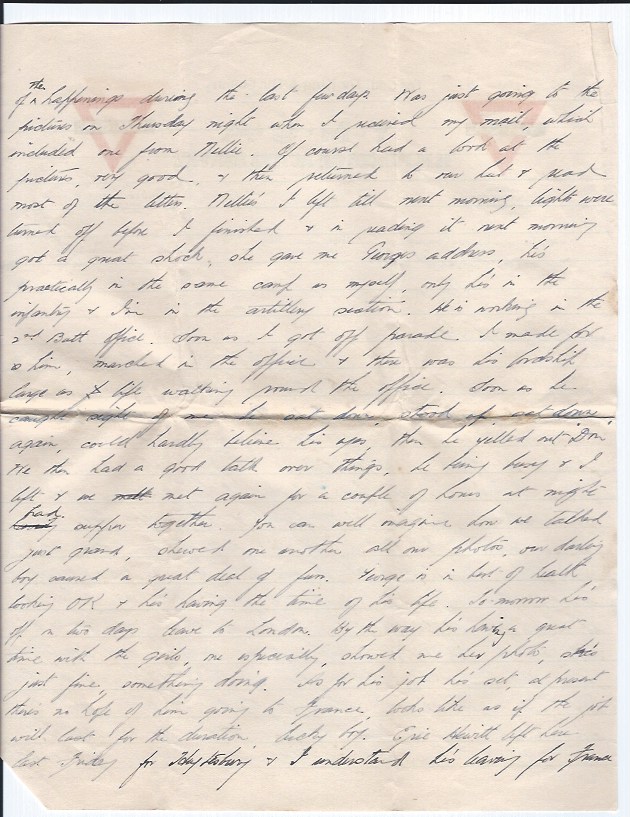 of the happenings during the last few days. Was just going to the
pictures on Thursday night when I received my mail, which
included one from Nellie. Of course had a look at the
pictures, very good, & then returned to our hut & read
most of the letters. Nellie's I left till next morning, lights were
turned off before I finished & in reading it next morning
got a great shock, she gave me Georges address, he's
practically in the same camp as myself, only he's in the
infantry & I'm in the artillery section. He is working in the
2nd Batt office. Soon as I got off parade I made for
him, marched in the office & there was his lordship
large as life walking round the office. Soon as he
caught sight of me he sat down, stood up, sat down
again, could hardly believe his eyes, then he yelled out Don.
We then had a good talk over things. he being busy & I
left & we met again for a couple of hours at night
had supper together. You can well imagine how we talked
just grand, shewed one another all our photos, our darling
boy caused a great deal of fun. George is in best of health
looking OK & he's having the time of his life. To-morrow he's
off on two days leave to London. By the way he's having a great
time with the girls, one especially, showed me her photo, she's
just fine, something doing. As for his job he's set, at present
theres no hope of him going to France, looks like as if the job
will last for the duration lucky boy. Eric Hewitt left here
last Friday for Heytesbury & I understand he's leaving for France